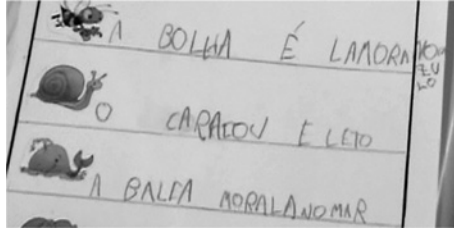 A BOLHA É LAMORA
O CARACOU E LETO
A BALEA MORALANOMAR